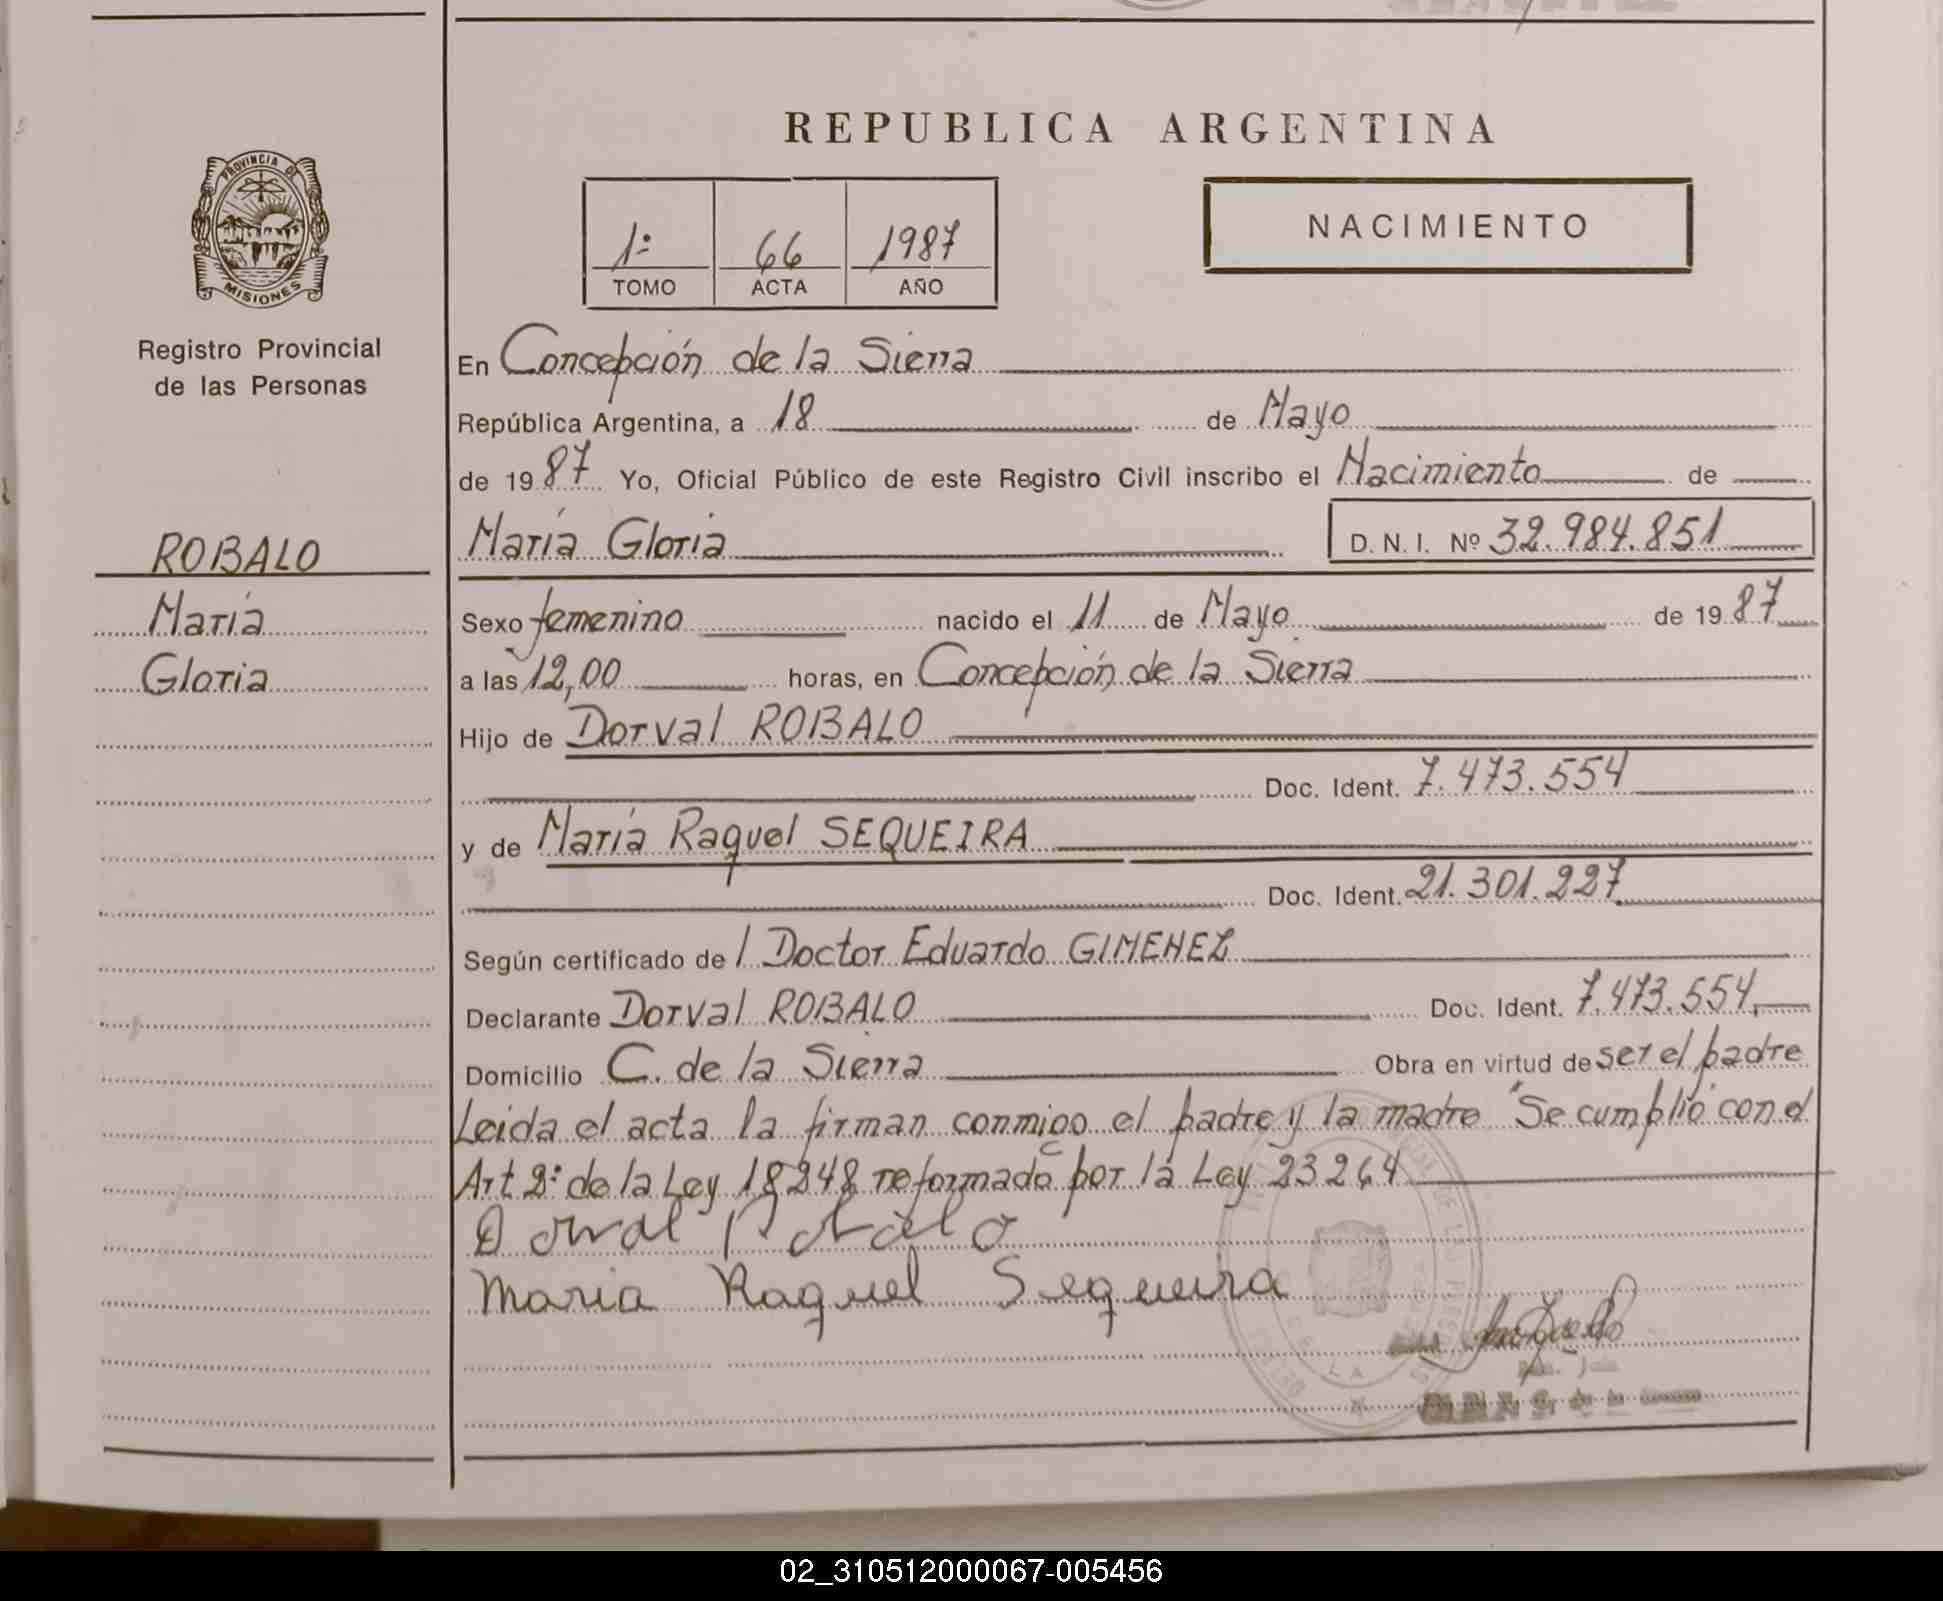 REPUBLICA ARGENTINA
PROVINCIA DE
MISIONES
Registro Provincial
de las Personas
ROBALO
María
Gloria
1º 66 1987
TOMO ACTA AÑO
NACIMIENTO
En Concepción de la Sierra
República Argentina, a 18 de Mayo
de 1987 Yo, Oficial Público de este Registro Civil inscribo el Nacimiento de
María Gloria D. N. I. Nº 32.984.851
Sexo femenino nacido el 11 de Mayo de 1987
a las 12,00 horas, en Concepción de la Sierra
Hijo de Dorval ROBALO
Doc. Ident. 7.473.554
y de María Raquel SEQUEIRA
Doc. Ident. 21.301.227
Según certificado de l Doctor Eduardo GIMENEZ
Declarante Dorval ROBALO Doc. Ident. 7.473.554
Domicilio C. de la Sierra Obra en virtud de ser el padre
Leida el acta la firman conmigo el padre y la madre "Se cumplió" con el
Art 2º de la Ley 18248 reformada por la Ley 23264
Dorval Robalo
Maria Raquel Sequeira
02_310512000067-005456